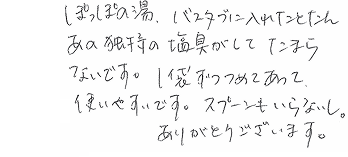 ぽっぽの湯、バスタブに入れたとたん
あの独特の塩臭がして たまら
ないです。1袋ずつつめてあって、
使いやすいです。スプーンもいらないし。
ありがとうございます。